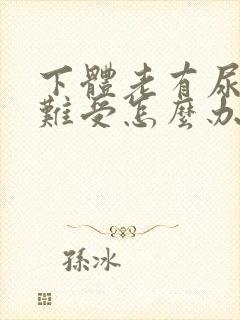 下體老有尿
難受怎麼办
孫冰